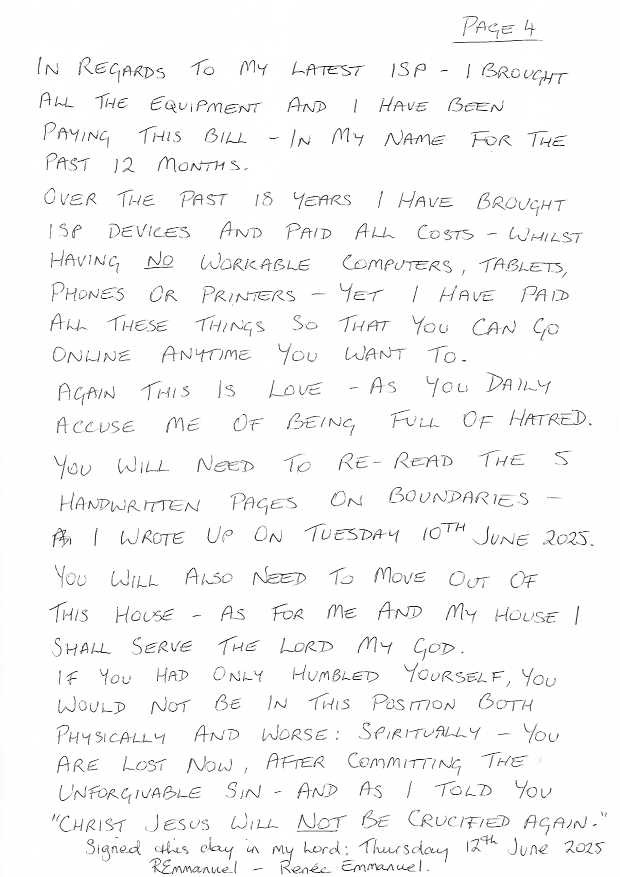 PAGE 4
IN REGARDS TO MY LATEST ISP - I BROUGHT
ALL THE EQUIPMENT AND I HAVE BEEN
PAYING THIS BILL - IN MY NAME FOR THE
PAST 12 MONTHS.
OVER THE PAST 18 YEARS I HAVE BROUGHT
ISP DEVICES AND PAID ALL COSTS - WHILST
HAVING NO WORKABLE COMPUTERS, TABLETS,
PHONES OR PRINTERS - YET I HAVE PAID
ALL THESE THINGS SO THAT YOU CAN GO
ONLINE ANYTIME YOU WANT TO.
AGAIN THIS IS LOVE - AS YOU DAILY
ACCUSE ME OF BEING FULL OF HATRED.
YOU WILL NEED TO RE-READ THE 5
HANDWRITTEN PAGES ON BOUNDARIES -
I WROTE UP ON TUESDAY 10TH JUNE 2025.
YOU WILL ALSO NEED TO MOVE OUT OF
THIS HOUSE - AS FOR ME AND MY HOUSE I
SHALL SERVE THE LORD MY GOD.
IF YOU HAD ONLY HUMBLED YOURSELF, YOU
WOULD NOT BE IN THIS POSITION BOTH
PHYSICALLY AND WORSE: SPIRITUALLY - YOU
ARE LOST NOW, AFTER COMMITTING THE
UNFORGIVABLE SIN - AND AS I TOLD YOU
"CHRIST JESUS WILL NOT BE CRUCIFIED AGAIN."
Signed this day in my Lord: Thursday 12th June 2025
REmmanuel - Renée Emmanuel.